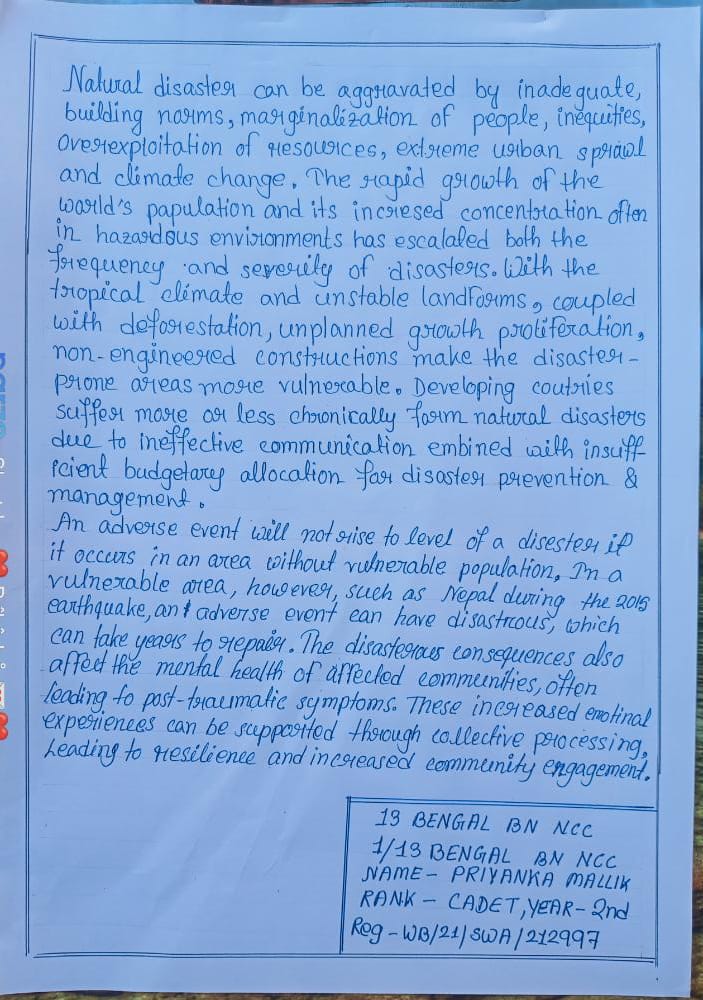 Natural disaster can be aggravated by inadeguate,
building norms, marginalization of people, inequities,
Overexploitation of resources, extreme urban sprawl
and climate change. The rapid growth of the
world's papulation and its incresed concentration often
in hazardous environments has escalaled both the
frequency and severity of disasters. With the
tropical climate and unstable landforms, coupled
with deforestation, unplanned growth proliferation,
non-engineered constructions make the disaster-
prone areas more vulnerable. Developing coutries
suffer more or less chronically form natural disasters
due to ineffective communication embined with insuff-
icient budgetary allocation for disaster prevention &
management.
An adverse event will not rise to level of a disester if
it occurs in an area without vulnerable population. In a
vulnerable area, however, such as Nepal during the 2015
earthquake, an adverse event can have disastrous, which
can take years to repair. The disasterous consequences also
affect the mental health of affected communities, often
leading to post-traumatic symptoms. These increased emotinal
experiences can be supported through collective processing,
Leading to resilience and increased community engagement.
13 BENGAL BN NCC
1/13 BENGAL BN NCC
NAME - PRIYANKA MALLIK
RANK - CADET, YEAR - 2nd
Reg - WB/21/SWA/212997